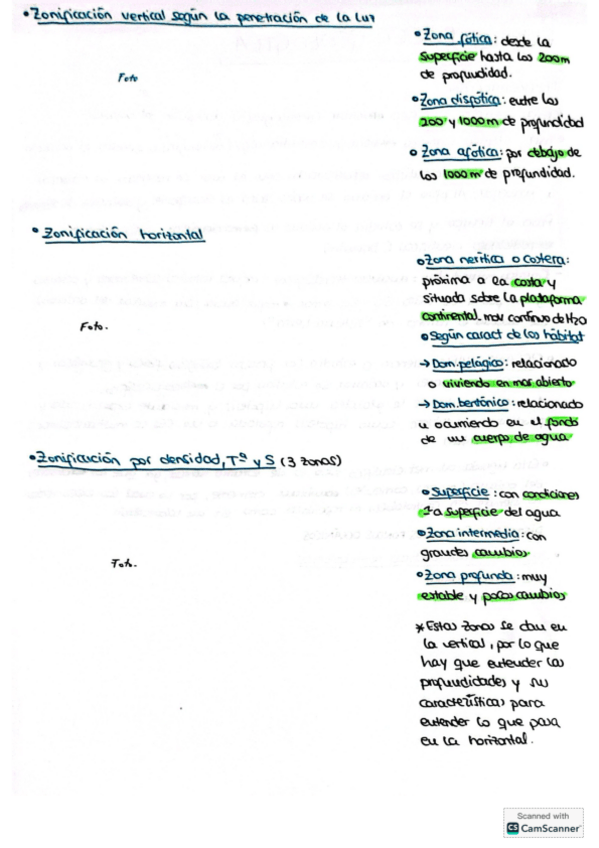 • Zonificación vertical según la penetración de la luz
Foto
• Zona fótica: desde la
superficie hasta los 200m
de profundidad.
• Zona disfótica: entre los
200 y 1000m de profundidad
• Zona afótica: por debajo de
los 1000m de profundidad.
• Zonificación horizontal
Foto.
• Zona nerítica o costera:
próxima a la costa y
situada sobre la plataforma
continental. mov continuo de H2O
• Según caract de los hábitat
→ Dom. pelágico: relacionado
o viviendo en mar abierto
→ Dom. bentónico: relacionado
u ocurriendo en el fondo
de un cuerpo de agua
• Zonificación por densidad, Tª y S (3 zonas)
Foto.
• Superficie: con condiciones
a superficie del agua
• Zona intermedia: con
grandes cambios
• Zona profunda: muy
estable y pocos cambios
* Estas zonas se dan en
la vertical, por lo que
hay que entender las
profundidades y sus
características para
entender lo que pasa
en la horizontal.
Scanned with
CS CamScanner